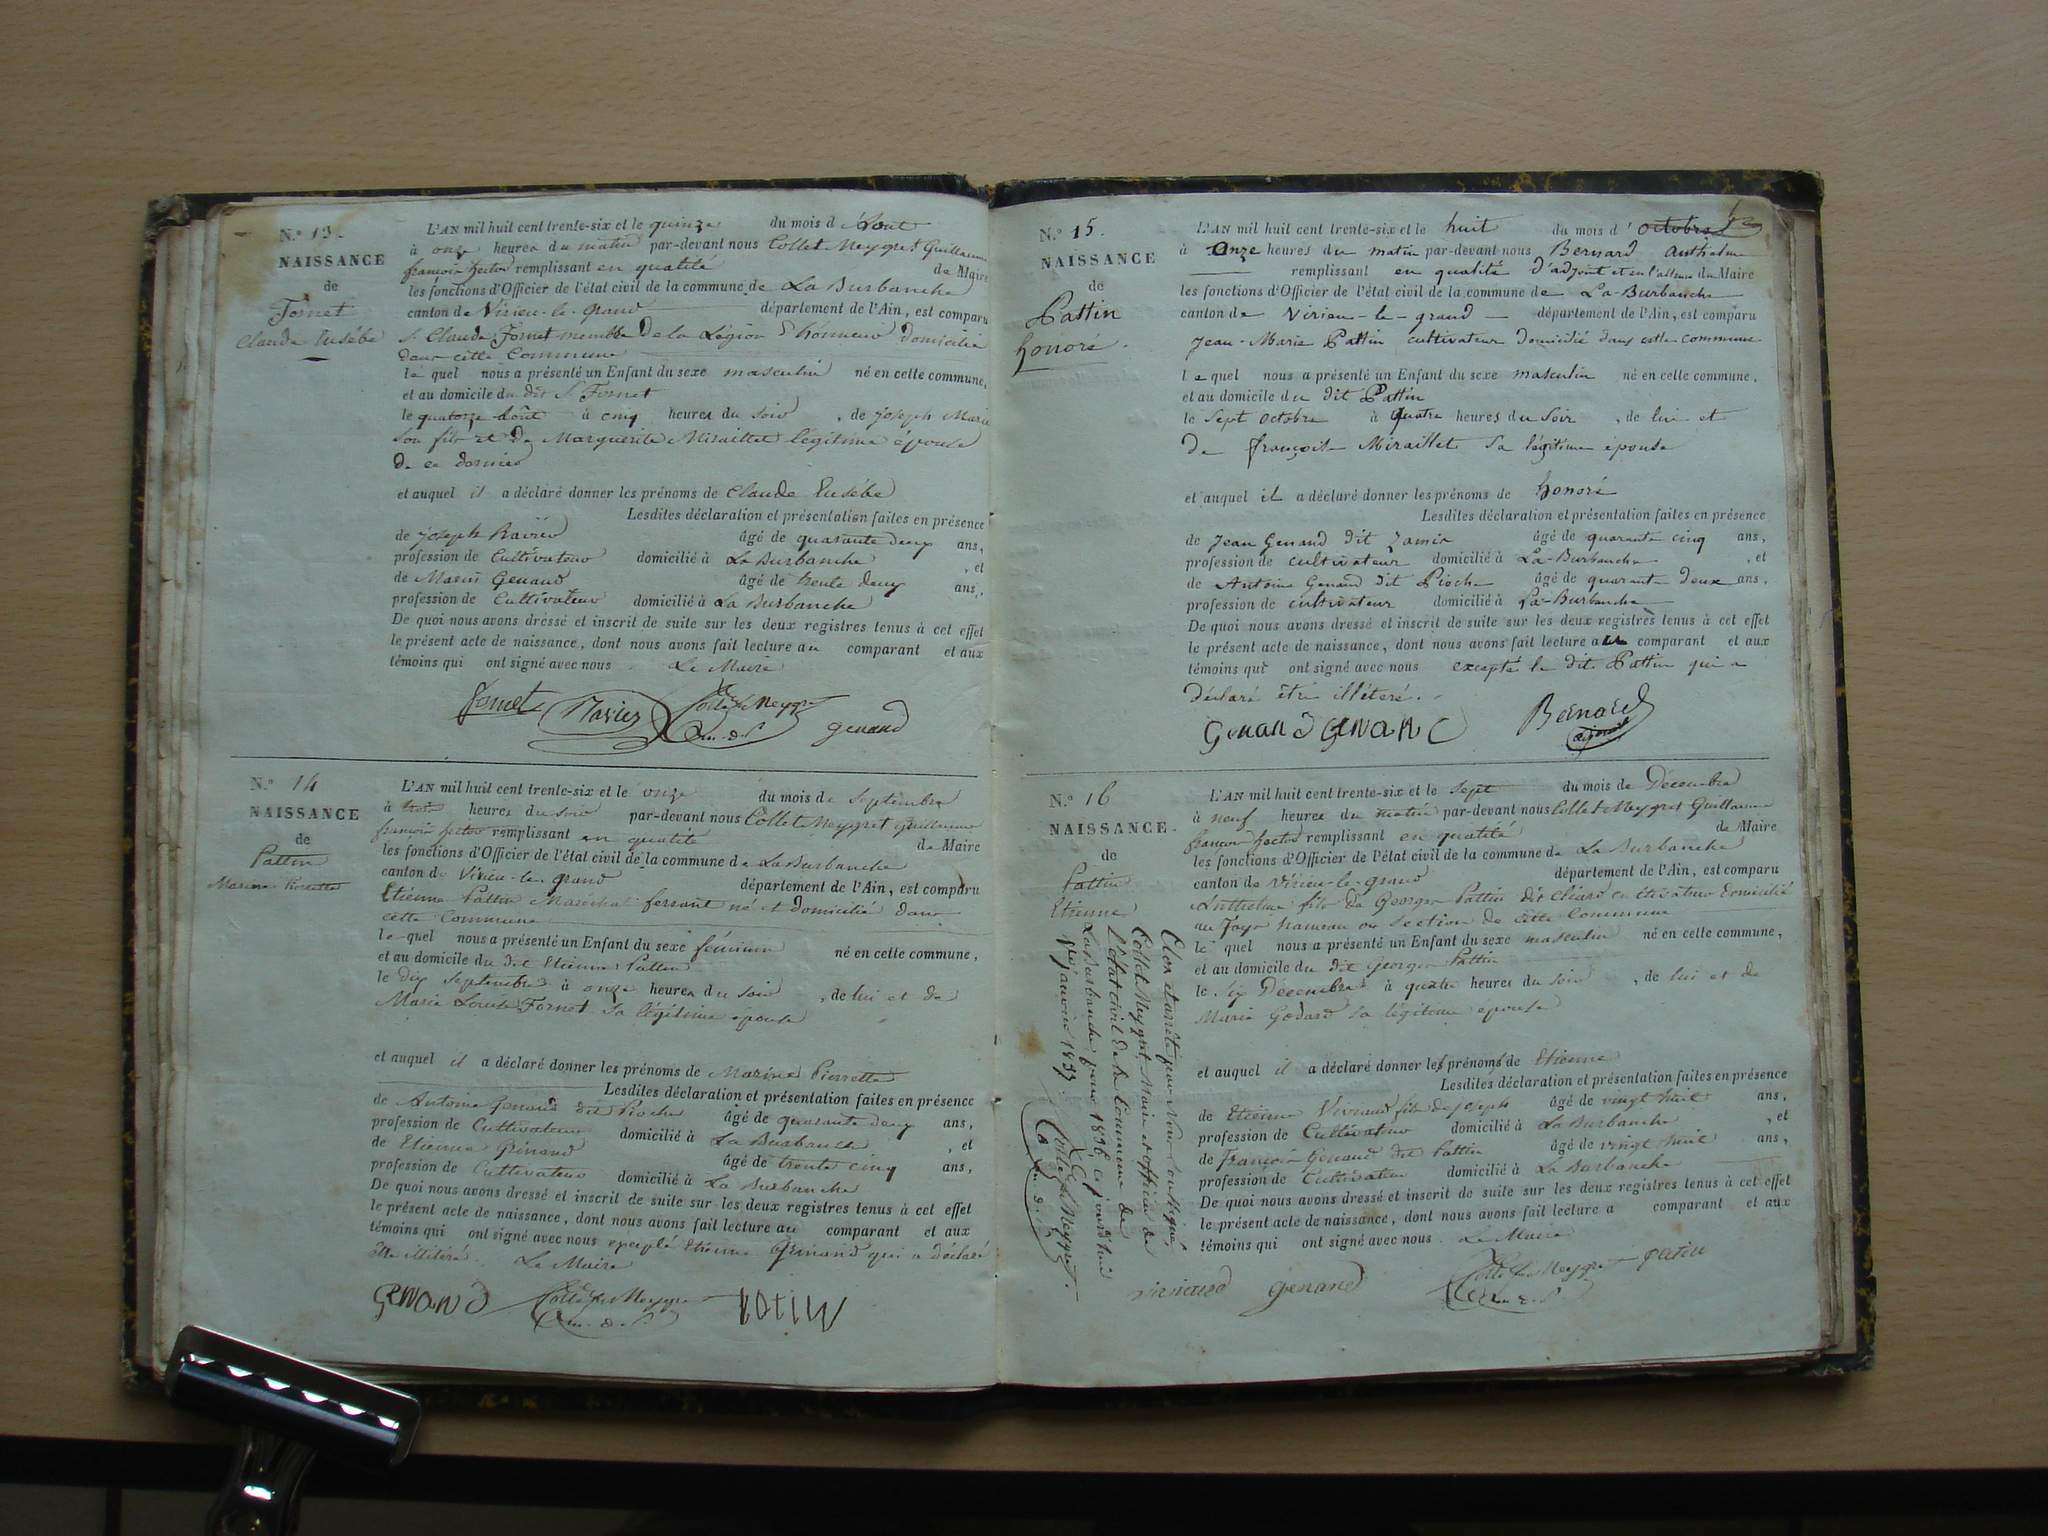 N.º 13.
NAISSANCE
de
Fornet
Claude Eusébe
L'AN mil huit cent trente-six et le quinze du mois d'Aout
à onze heures du matin par-devant nous Collet Meygret Guillaume
françois hector remplissant en qualité de Maire
les fonctions d'Officier de l'état civil de la commune de La Burbanche
canton de Virieu-le-grand département de l'Ain, est comparu
S. Claude Fornet membre de la Légion d'honneur domicilié
dans cette Commune
le quel nous a présenté un Enfant du sexe masculin né en cette commune,
et au domicile du dit S. Fornet
le quatorze Août à cinq heures du soir, de joseph Marie
son fils et de Marguerite Miraillet légitime épouse
de ce dernier
et auquel il a déclaré donner les prénoms de Claude Eusébe
Lesdites déclaration et présentation faites en présence
de joseph Ravier âgé de quarante deux ans,
profession de Cultivateur domicilié à La Burbanche, et
de Marin Genand âgé de trente deux ans,
profession de Cultivateur domicilié à La Burbanche
De quoi nous avons dressé et inscrit de suite sur les deux registres tenus à cet effet
le présent acte de naissance, dont nous avons fait lecture au comparant et aux
témoins qui ont signé avec nous Le Maire
fornet Ravier Collet Meygret genand
N.º 14
NAISSANCE
de
Pattin
Marine Pierrette
L'AN mil huit cent trente-six et le onze du mois de Septembre
à trois heures du soir par-devant nous Collet Meygret Guillaume
françois hector remplissant en qualité de Maire
les fonctions d'Officier de l'état civil de la commune de La Burbanche
canton de Virieu-le-grand département de l'Ain, est comparu
Etienne Pattin Maréchal ferrant né et domicilié dans
cette Commune
le quel nous a présenté un Enfant du sexe féminin né en cette commune,
et au domicile du dit Etienne Pattin
le dix Septembre à onze heures du soir, de lui et de
Marie Louise Fornet sa légitime épouse
et auquel il a déclaré donner les prénoms de Marine Pierrette
Lesdites déclaration et présentation faites en présence
de Antoine Genand dit Pioche âgé de quarante deux ans,
profession de Cultivateur domicilié à La Burbanche, et
de Etienne Génand âgé de trente cinq ans,
profession de Cultivateur domicilié à La Burbanche
De quoi nous avons dressé et inscrit de suite sur les deux registres tenus à cet effet
le présent acte de naissance, dont nous avons fait lecture au comparant et aux
témoins qui ont signé avec nous excepté Etienne Génand qui a déclaré
être illitéré. Le Maire
Genand Collet Meygret
N.º 15.
NAISSANCE
de
Pattin
honoré.
L'AN mil huit cent trente-six et le huit du mois d'octobre
à Onze heures du matin par-devant nous Bernard Anthelme
remplissant en qualité d'adjoint et en l'absence du Maire
les fonctions d'Officier de l'état civil de la commune de La-Burbanche
canton de Virieu-le-grand département de l'Ain, est comparu
Jean-Marie Pattin cultivateur domicilié dans cette commune
le quel nous a présenté un Enfant du sexe masculin né en cette commune,
et au domicile du dit Pattin
le sept octobre à quatre heures du soir, de lui et
de françoise Miraillet sa légitime épouse
et auquel il a déclaré donner les prénoms de honoré
Lesdites déclaration et présentation faites en présence
de Jean Genand dit Jamin âgé de quarante cinq ans,
profession de cultivateur domicilié à La-Burbanche, et
de Antoine Genand dit Pioche âgé de quarante deux ans,
profession de cultivateur domicilié à La-Burbanche
De quoi nous avons dressé et inscrit de suite sur les deux registres tenus à cet effet
le présent acte de naissance, dont nous avons fait lecture au comparant et aux
témoins qui ont signé avec nous excepté le dit Pattin qui a
déclaré être illétéré.
Genand Genand Bernard
adjoint
N.º 16
NAISSANCE.
de
Pattin
Etienne
L'AN mil huit cent trente-six et le sept du mois de Décembre
à neuf heures du matin par-devant nous Collet Meygret Guillaume
françois hector remplissant en qualité de Maire
les fonctions d'Officier de l'état civil de la commune de La Burbanche
canton de Virieu-le-grand département de l'Ain, est comparu
Anthelme fils de George Pattin dit Cliard cultivateur domicilié
au Fays hameau ou section de cette Commune
le quel nous a présenté un Enfant du sexe masculin né en cette commune,
et au domicile du dit George Pattin
le Six Décembre à quatre heures du soir, de lui et de
Marie Godard sa légitime épouse
et auquel il a déclaré donner les prénoms de Etienne
Lesdites déclaration et présentation faites en présence
de Etienne Vivraud fils de joseph âgé de vingt huit ans,
profession de Cultivateur domicilié à La Burbanche, et
de François Genand dit Pattin âgé de vingt huit ans,
profession de Cultivateur domicilié à La Burbanche
De quoi nous avons dressé et inscrit de suite sur les deux registres tenus à cet effet
le présent acte de naissance, dont nous avons fait lecture a comparant et aux
témoins qui ont signé avec nous. Le Maire
genand Collet Meygret patin
Clos et arrêté par Nous soussigné,
Collet Meygret, Maire et officier de
l'état civil de la Commune de
La Burbanche, pour 1836, ce jourd'hui
1er janvier 1837.
Collet Meygret